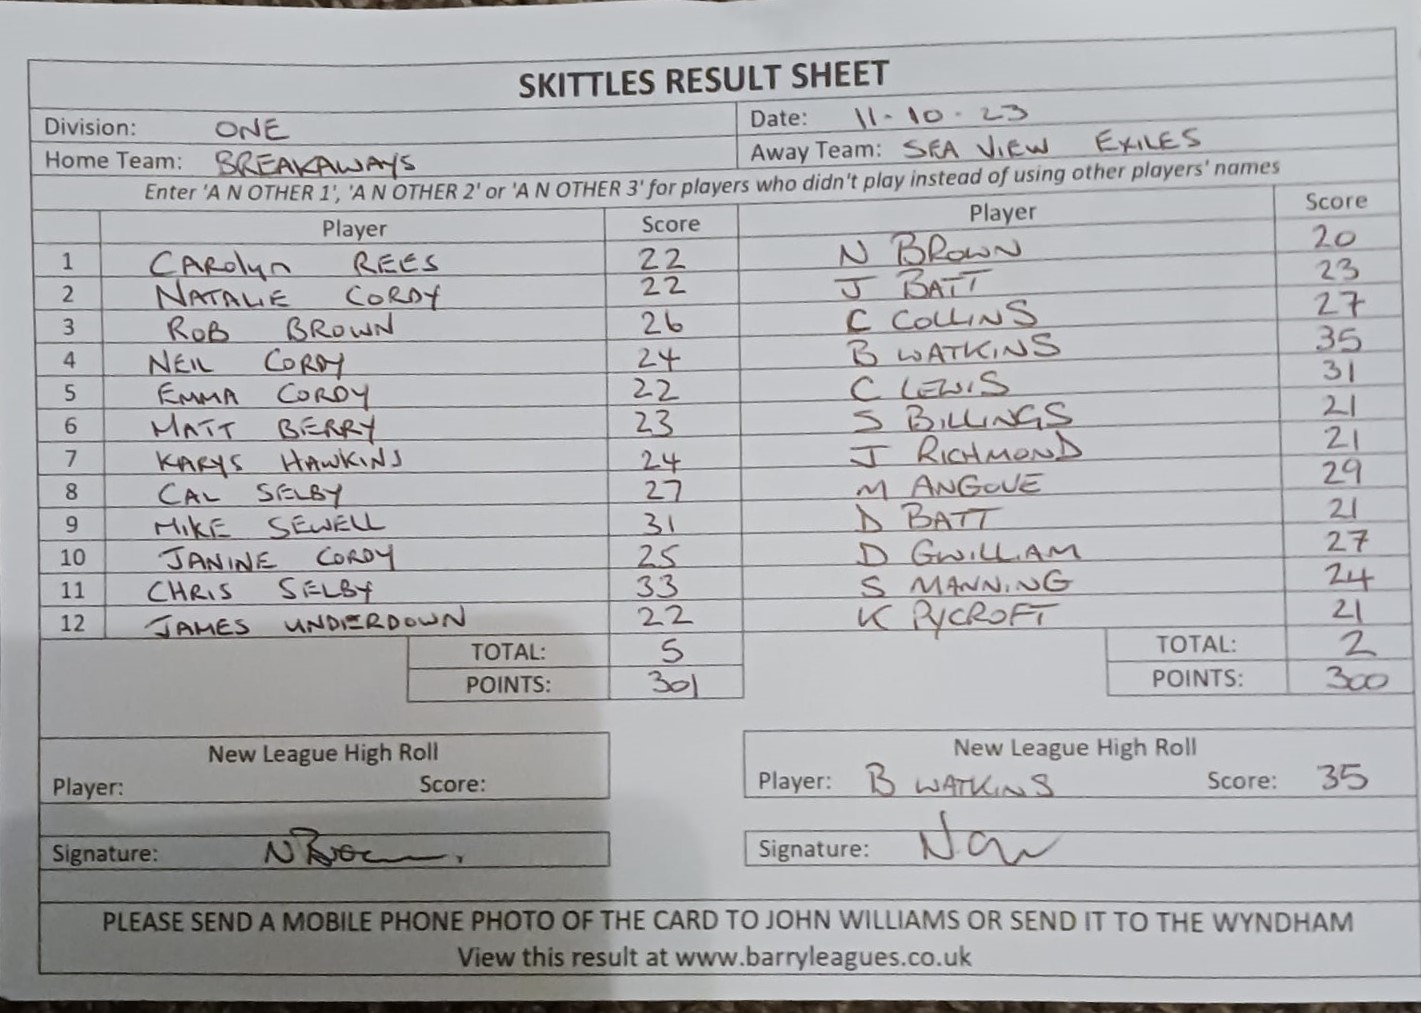 SKITTLES RESULT SHEET
Division: ONE Date: 11-10-23
Home Team: BREAKAWAYS Away Team: SEA VIEW EXILES
Enter 'A N OTHER 1', 'A N OTHER 2' or 'A N OTHER 3' for players who didn't play instead of using other players' names
Player Score Player Score
1 CAROLYN REES 22 N BROWN 20
2 NATALIE CORDY 22 J BATT 23
3 ROB BROWN 26 C COLLINS 27
4 NEIL CORDY 24 B WATKINS 35
5 EMMA CORDY 22 C LEWIS 31
6 MATT BERRY 23 S BILLINGS 21
7 KARYS HAWKINS 24 J RICHMOND 21
8 CAL SELBY 27 M ANGOVE 29
9 MIKE SEWELL 31 D BATT 21
10 JANINE CORDY 25 D GWILLIAM 27
11 CHRIS SELBY 33 S MANNING 24
12 JAMES UNDERDOWN 22 K PYCROFT 21
TOTAL: 5 TOTAL: 2
POINTS: 301 POINTS: 300
New League High Roll New League High Roll
Player: Score: Player: B WATKINS Score: 35
Signature: N Brown Signature:
PLEASE SEND A MOBILE PHONE PHOTO OF THE CARD TO JOHN WILLIAMS OR SEND IT TO THE WYNDHAM
View this result at www.barryleagues.co.uk